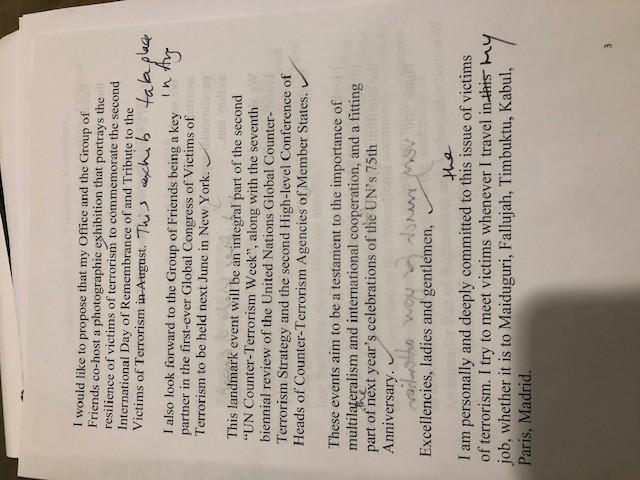 I would like to propose that my Office and the Group of
Friends co-host a photographic exhibition that portrays the
resilience of victims of terrorism to commemorate the second
International Day of Remembrance of and Tribute to the
Victims of Terrorism in August. This exhib take place
in Aug
I also look forward to the Group of Friends being a key
partner in the first-ever Global Congress of Victims of
Terrorism to be held next June in New York.
This landmark event will be an integral part of the second
"UN Counter-Terrorism Week", along with the seventh
biennial review of the United Nations Global Counter-
Terrorism Strategy and the second High-level Conference of
Heads of Counter-Terrorism Agencies of Member States.
These events aim to be a testament to the importance of
multilateralism and international cooperation, and a fitting
the
part of next year's celebrations of the UN's 75th
Anniversary.
Excellencies, ladies and gentlemen,
the
I am personally and deeply committed to this issue of victims
of terrorism. I try to meet victims whenever I travel in this my
job, whether it is to Maiduguri, Fallujah, Timbuktu, Kabul,
Paris, Madrid.
3